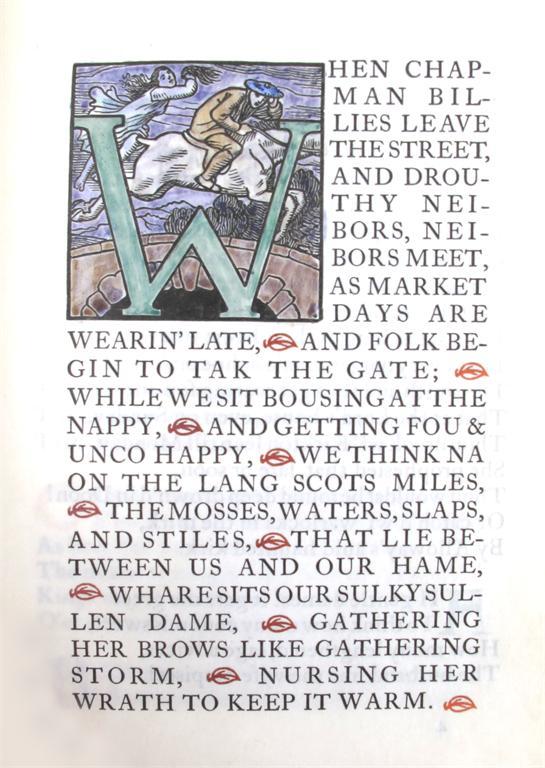 WHEN CHAP-
MAN BIL-
LIES LEAVE
THE STREET,
AND DROU-
THY NEI-
BORS, NEI-
BORS MEET,
AS MARKET
DAYS ARE
WEARIN' LATE, AND FOLK BE-
GIN TO TAK THE GATE;
WHILE WE SIT BOUSING AT THE
NAPPY, AND GETTING FOU &
UNCO HAPPY, WE THINK NA
ON THE LANG SCOTS MILES,
THE MOSSES, WATERS, SLAPS,
AND STILES, THAT LIE BE-
TWEEN US AND OUR HAME,
WHARE SITS OUR SULKY SUL-
LEN DAME, GATHERING
HER BROWS LIKE GATHERING
STORM, NURSING HER
WRATH TO KEEP IT WARM.